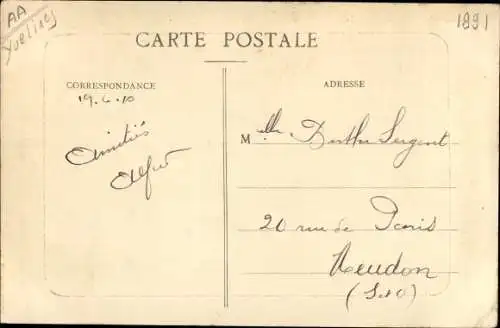 AA
Yvelines
1891
CARTE POSTALE
CORRESPONDANCE
19.6.10
Amitiés
Alfred
ADRESSE
Mlle Berthe Sergent
20 rue de Paris
Meudon
(S et O)